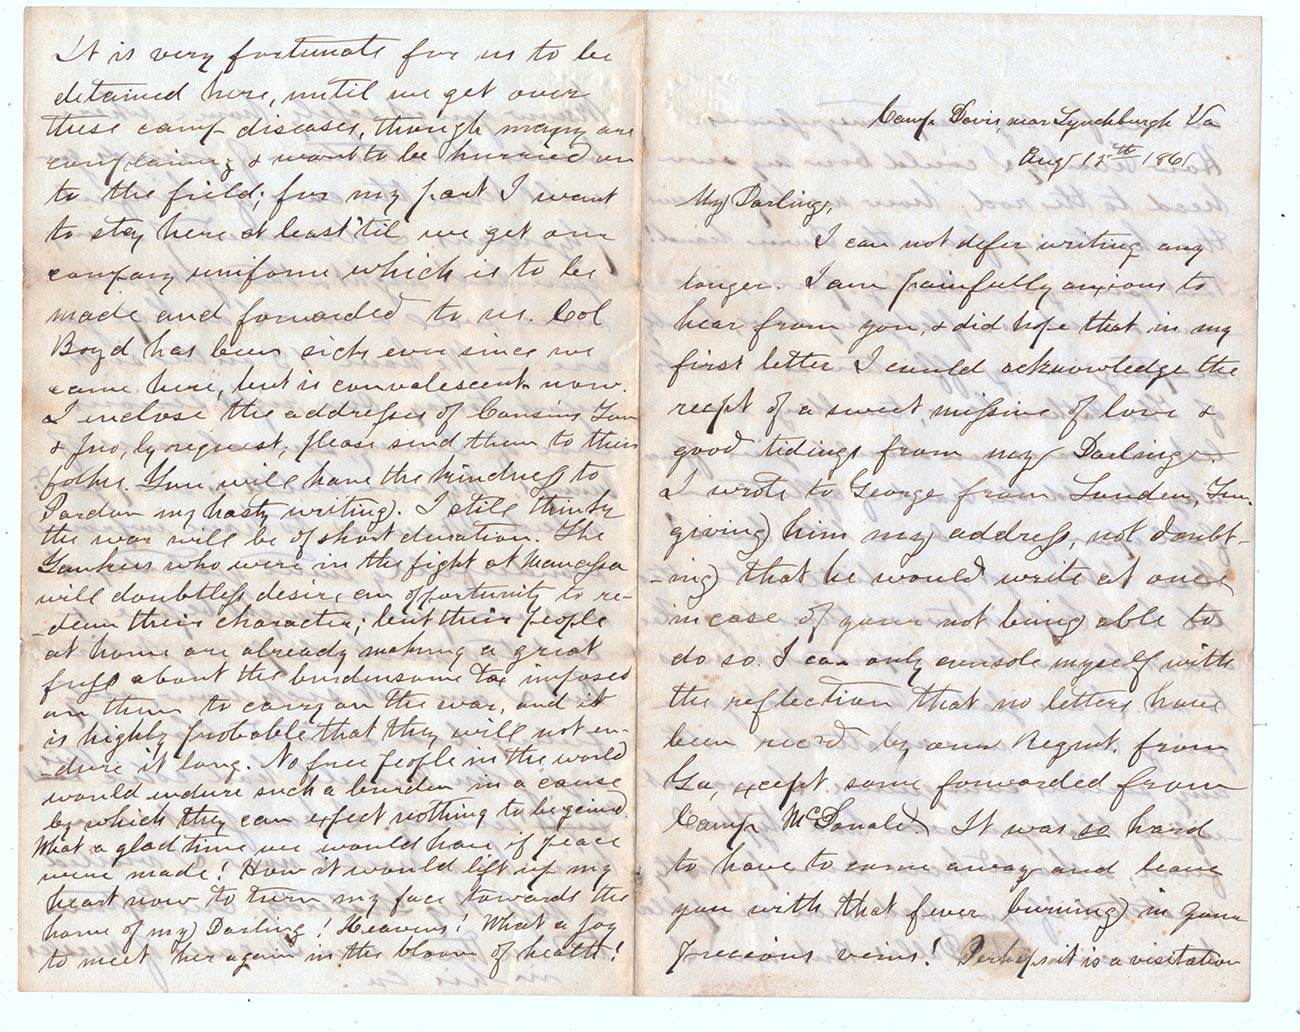 It is very fortunate for us to be
detained here, until we get over
these camp diseases, though many are
complaining & want to be hurried on
to the field; for my part I want
to stay here at least 'til we get our
company uniform which is to be
made and forwarded to us. Col
Boyd has been sick ever since we
came here, but is convalescent now.
I inclose the addresses of Cousins
& Jno, by request, please send them to their
folks. You will have the kindness to
Pardon my hasty writing. I still think
the war will be of short duration. The
Yankees who were in the fight at Manassa
will doubtless desire an opportunity to re-
-deem their character; but their people
at home are already making a great
fuss about the burdensome tax imposed
on them to carry on the war, and it
is highly probable that they will not en-
-dure it long. No free people in the world
would endure such a burden in a cause
by which they can expect nothing to be gained.
What a glad time we would have if peace
were made! How it would lift up my
heart now to turn my face towards the
home of my Darling! Heavens! What a joy
to meet her again in the bloom of health!
Camp Davis, near Lynchburgh Va
Aug 12th 1861
My Darling,
I can not defer writing any
longer. I am painfully anxious to
hear from you, & did hope that in my
first letter I could acknowledge the
recpt of a sweet missive of love &
good tidings from my Darling.
I wrote to George from Lunden, Ten.
giving him my address, not doubt-
-ing that he would write at once
in case of your not being able to
do so. I can only console myself with
the reflection that no letters have
been rec'd by our Regmt. from
Ga, except some forwarded from
Camp McDonald. It was so hard
to have to come away and leave
you with that fever burning in your
precious veins! Perhaps it is a visitation